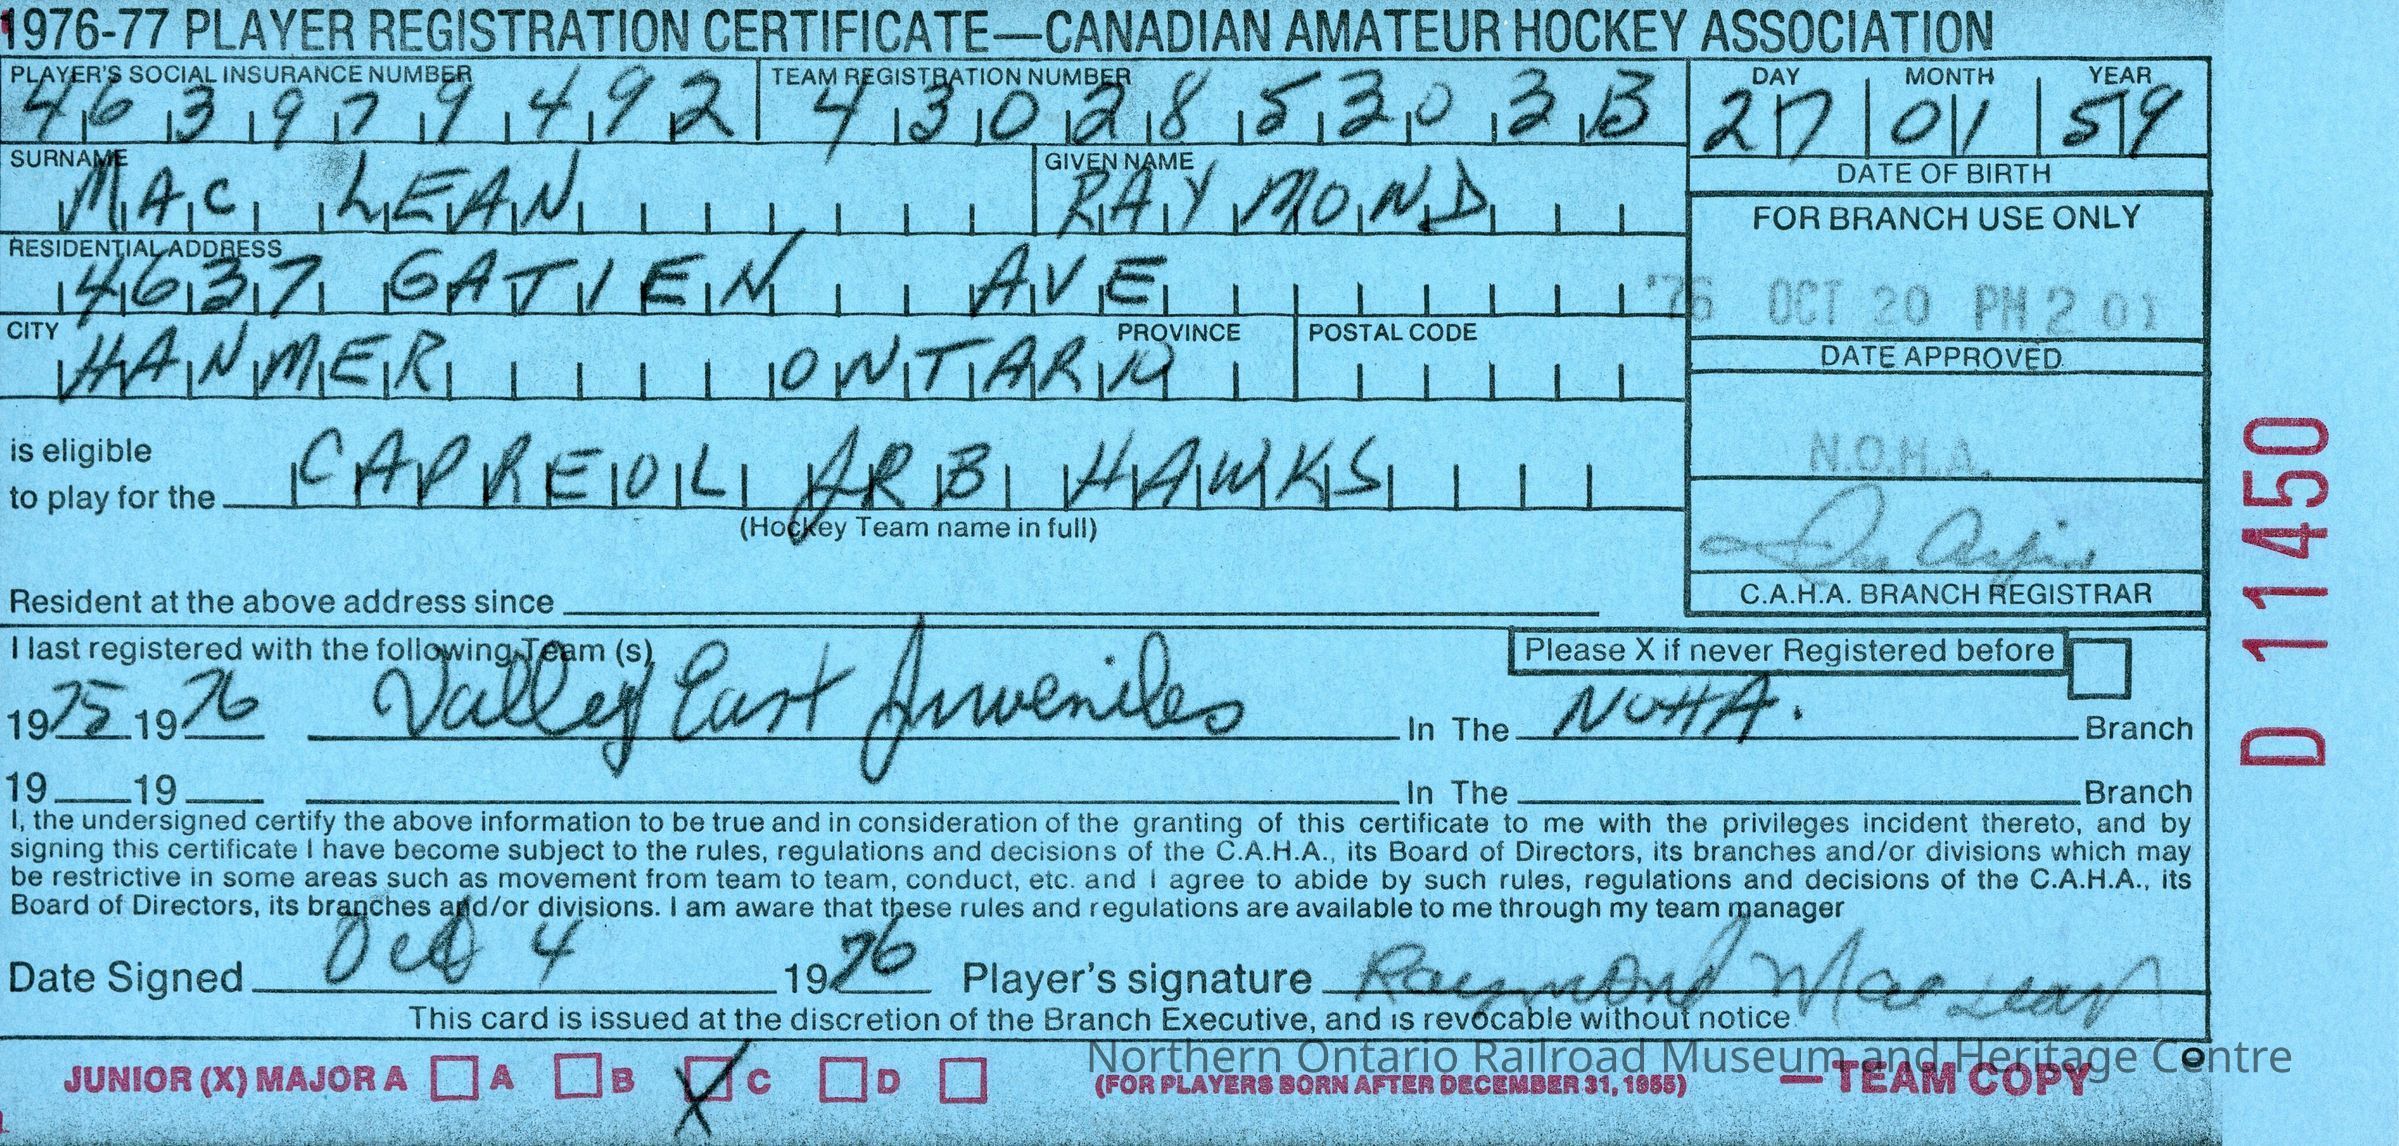 1976-77 PLAYER REGISTRATION CERTIFICATE—CANADIAN AMATEUR HOCKEY ASSOCIATION
PLAYER'S SOCIAL INSURANCE NUMBER TEAM REGISTRATION NUMBER DAY MONTH YEAR
463979492 430285303B 27 01 59
DATE OF BIRTH
SURNAME GIVEN NAME
MAC LEAN RAYMOND
FOR BRANCH USE ONLY
RESIDENTIAL ADDRESS
4637 GATIEN AVE
'76 OCT 20 PM 2 01
CITY PROVINCE POSTAL CODE
HANMER ONTARIO
DATE APPROVED
is eligible
to play for the CAPREOL JR B HAWKS
(Hockey Team name in full)
N.O.H.A.
C.A.H.A. BRANCH REGISTRAR
Resident at the above address since
D 11450
I last registered with the following Team (s) Please X if never Registered before
1975 1976 Valley East Juveniles In The NOHA. Branch
19 19 In The Branch
I, the undersigned certify the above information to be true and in consideration of the granting of this certificate to me with the privileges incident thereto, and by
signing this certificate I have become subject to the rules, regulations and decisions of the C.A.H.A., its Board of Directors, its branches and/or divisions which may
be restrictive in some areas such as movement from team to team, conduct, etc. and I agree to abide by such rules, regulations and decisions of the C.A.H.A., its
Board of Directors, its branches and/or divisions. I am aware that these rules and regulations are available to me through my team manager
Date Signed Oct 4 1976 Player's signature Raymond MacLean
This card is issued at the discretion of the Branch Executive, and is revocable without notice
JUNIOR (X) MAJOR A A B X C D (FOR PLAYERS BORN AFTER DECEMBER 31, 1955) —TEAM COPY
Northern Ontario Railroad Museum and Heritage Centre